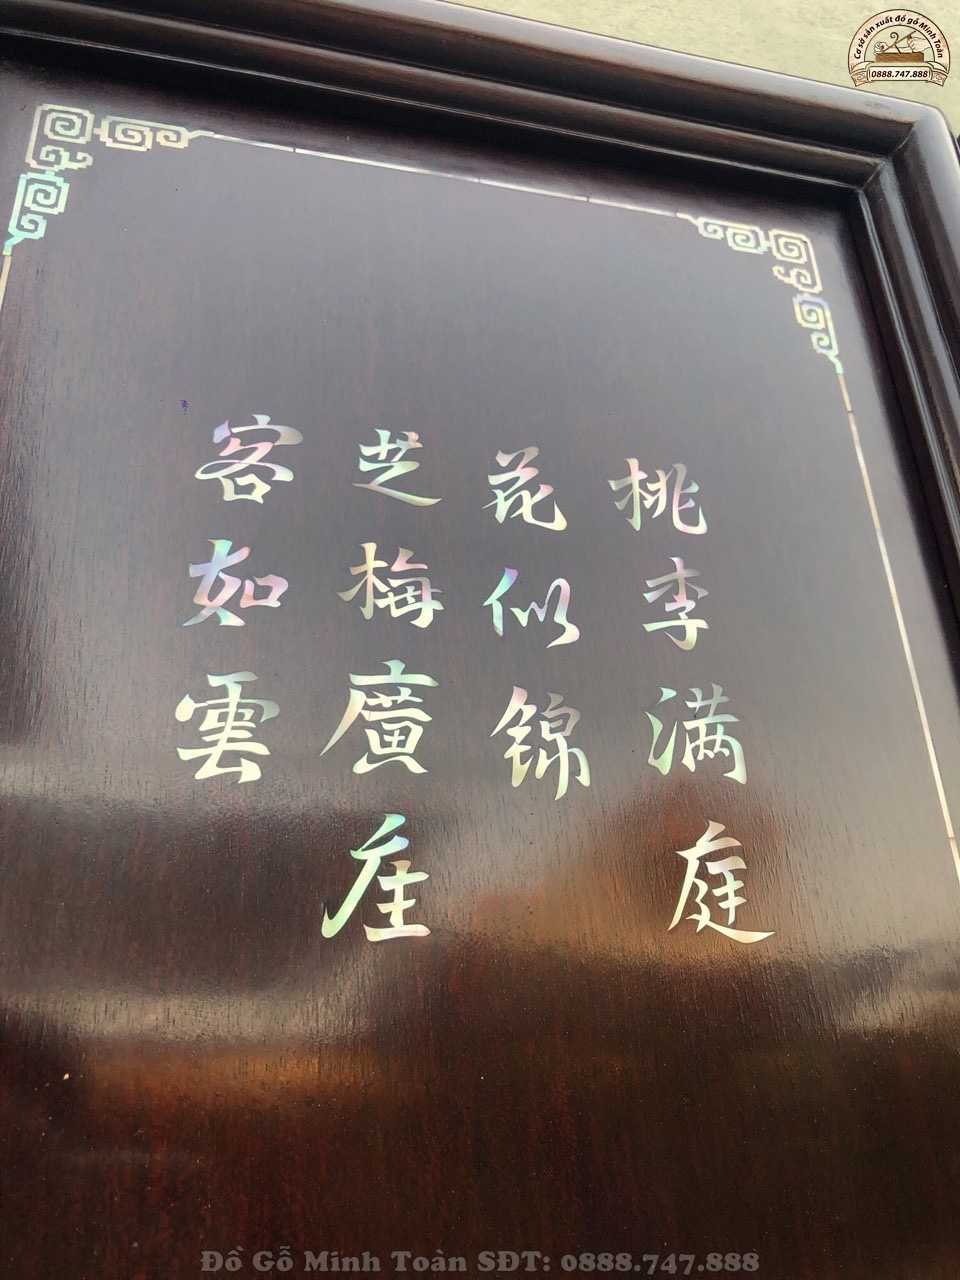 桃李满庭
花似锦
芝梅廣座
客如雲
Cơ sở sản xuất đồ gỗ Minh Toàn
0888.747.888
Đồ Gỗ Minh Toàn SĐT: 0888.747.888